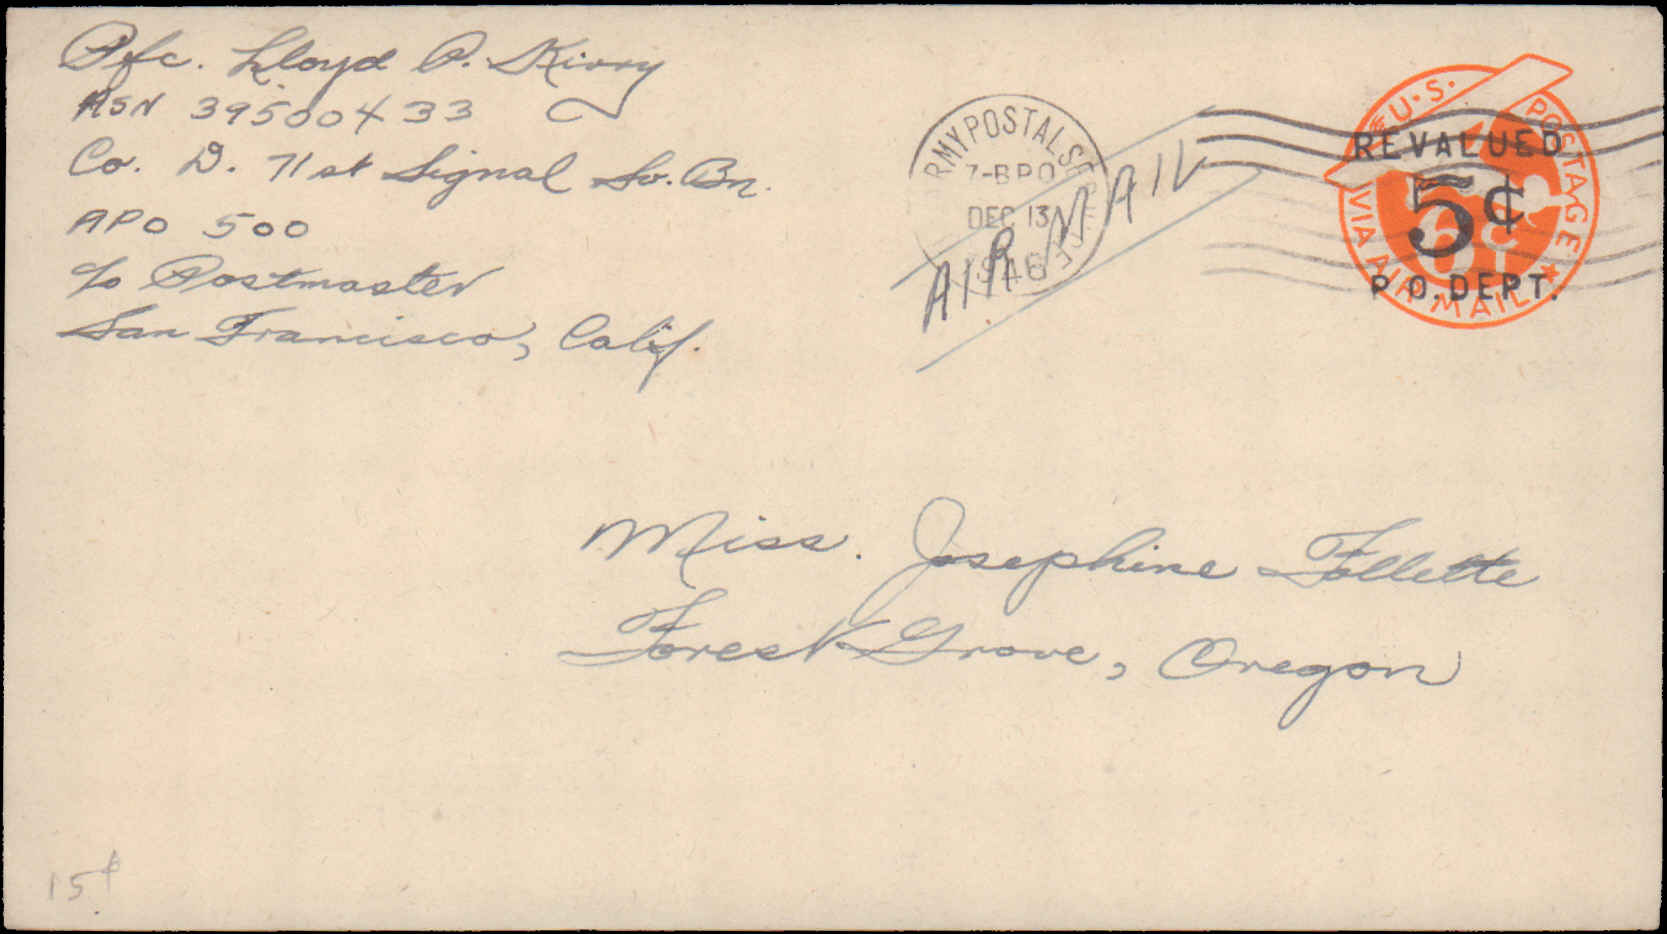 Pfc. Lloyd P.
ASN 39500433
Co. D. 71st Signal Sv. Bn.
APO 500
c/o Postmaster
San Francisco, Calif.
ARMY POSTAL SERVICE
7-BPO
DEC 13
1946
AIR MAIL
U.S. POSTAGE
VIA AIR MAIL
6¢
REVALUED
5¢
P.O. DEPT.
Miss. Josephine Follette
Forest Grove, Oregon
15¢